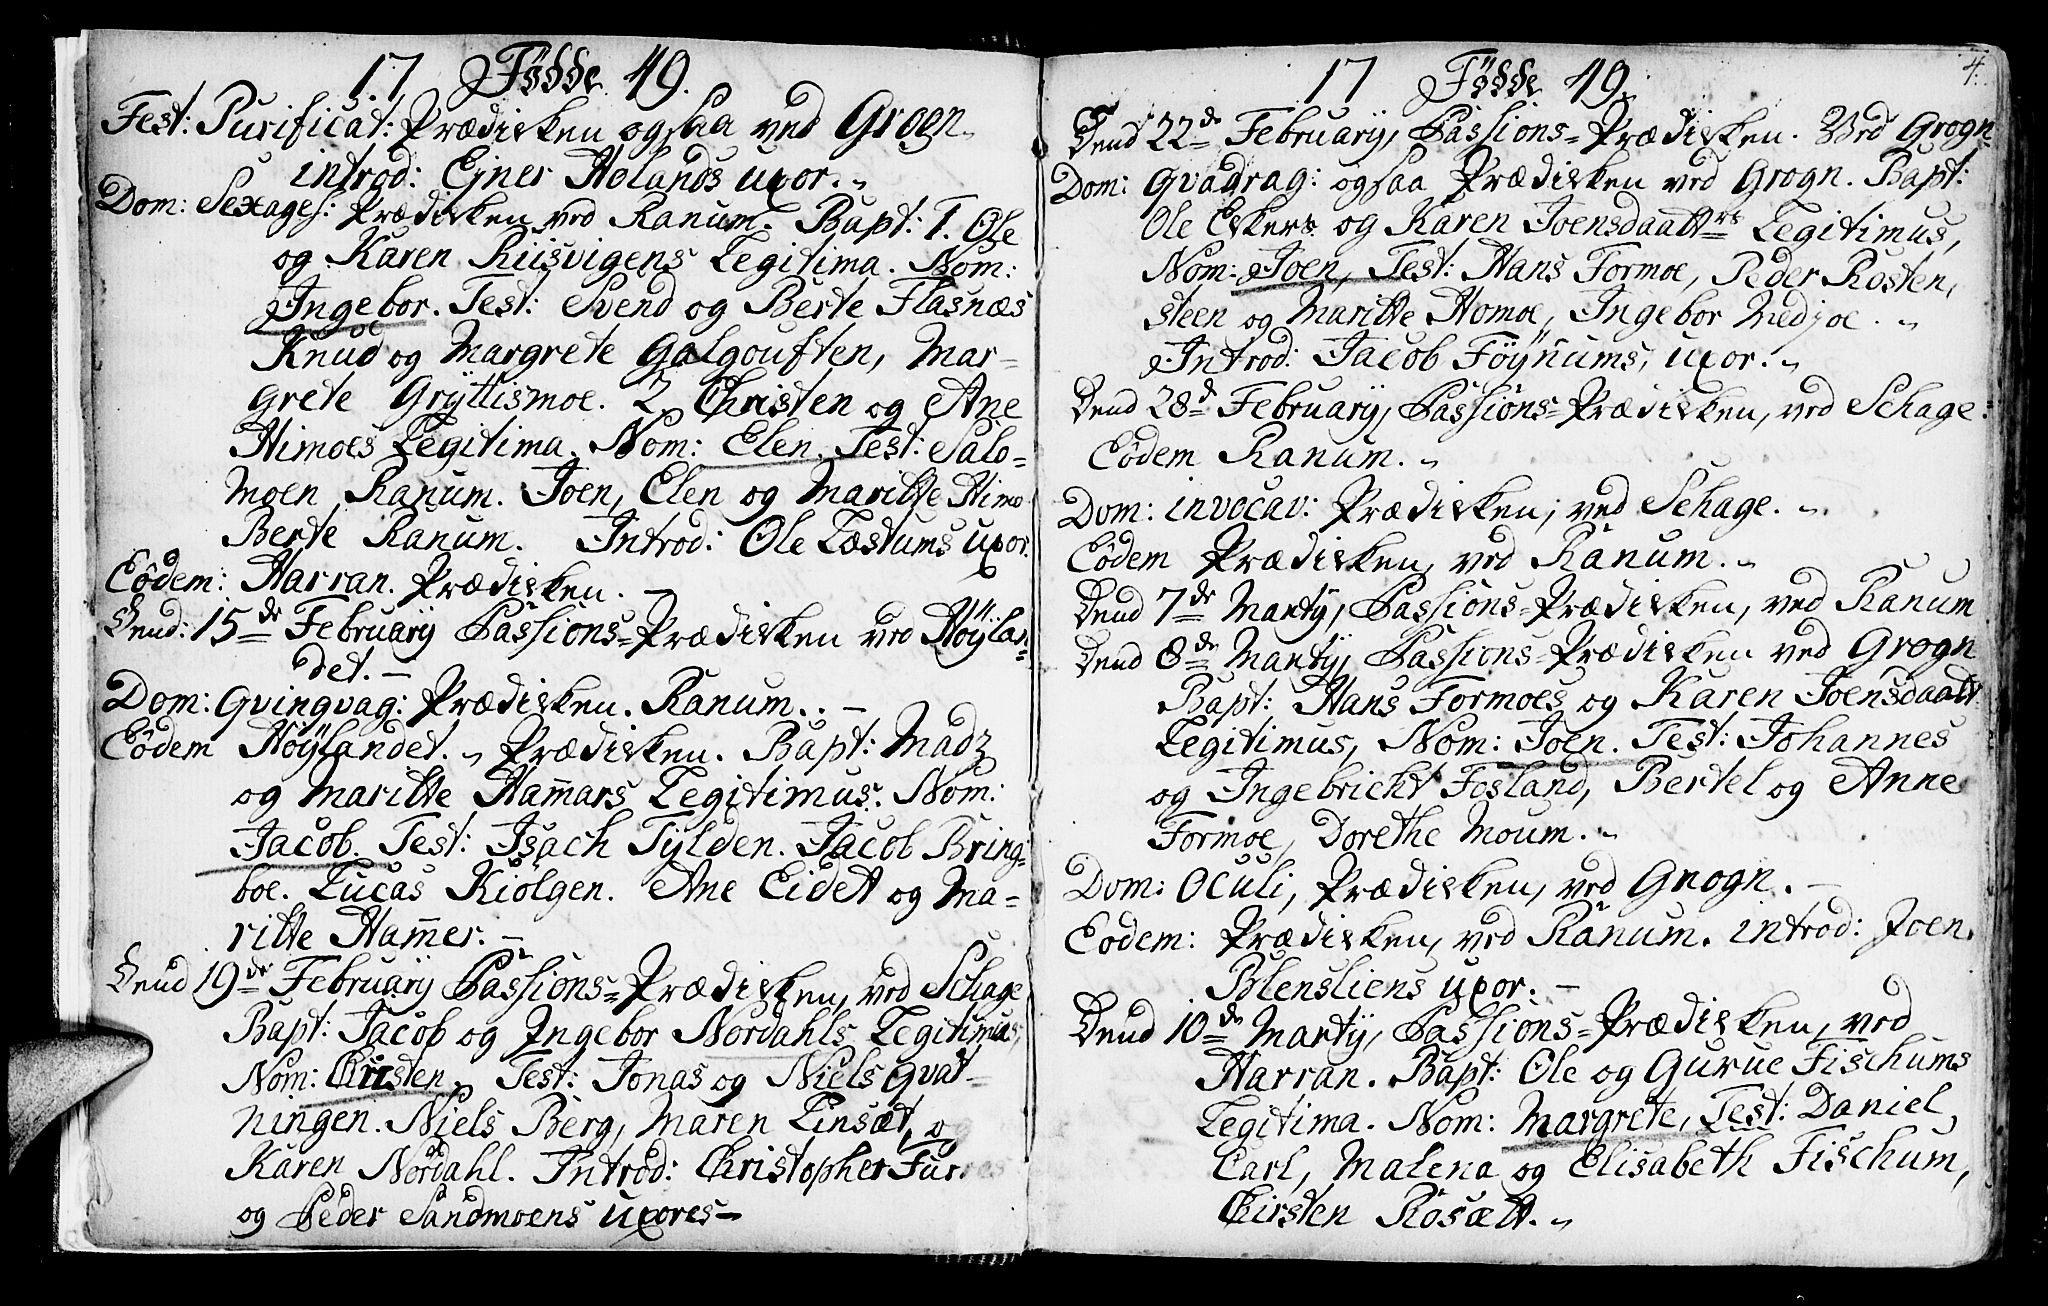 17 Födde 49.
Fest: Purificat: Prædiken ogsaa ved Groen
introd: Ejner Holands uxor.
Dom: Sexages: Prædiken ved Ranum. Bapt: 1. Ole
og Karen Riisvigens Legitima. Nom:
Ingebor. Test: Svend og Berte Flasnæs
Knud og Margrete Galgouften, Mar-
grete Grÿttismoe. 2 Christen og Ane
Himoes Legitima. Nom: Elen. Test: Salo-
moen Ranum. Joen, Elen og Maritte Himo
Berte Ranum. Introd: Ole Læstums uxor.
Eôdem: Harran. Prædiken. –
Dend: 15de Februarÿ Passions-Prædiken ved Höÿlan-
det. –
Dom: Qvinqvag: Prædiken. Ranum. –
Eôdem Höÿlandet. Prædiken. Bapt: Madz
og Maritte Ham̅ars Legitimus. Nom:
Jacob. Test: Isach Tylden. Jacob Bring-
boe. Lucas Kiölgen. Ane Eidet og Ma-
ritte Ham̅er. –
Dend 19de Februarÿ Passions-Prædiken, ved Schage
Bapt: Jacob og Ingebor Nordahls Legitimus,
Nom: Christen. Test: Jonas og Niels Qvat-
ningen. Niels Berg, Maren Linsæt, og
Karen Nordahl. Introd: Christopher Fur
og Peder Sandmoens uxores –
4.
17 Födde 49.
Dend 22de Februarÿ, Passions-Prædiken. Ved Grogn
Dom: Qvadrag: ogsaa Prædiken ved Grogn. Bapt:
Ole Ekers og Karen Joensdaatters Legitimus,
Nom: Joen, Test: Hans Formoe, Peder Rosten,
steen og Maritte Homoe, Ingebor Medjoe.
Introd: Jacob Föÿnums, uxor.
Dend 28de Februarÿ, Passions-Prædiken, ved Schage.
Eôdem Ranum.
Dom: invocav: Prædiken, ved Schage.
Eôdem Prædiken, ved Ranum.
Dend 7de Martÿ, Passions-Prædiken, ved Ranum
Dend 8de Martÿ, Passions-Prædiken ved Grogn
Bapt: Hans Formoes og Karen Joensdaatt:
Legitimus, Nom: Joen. Test: Johannes
og Ingebricht Fosland, Bertel og Anne
Formoe, Dorethe Moum.
Dom: Oculi, Prædiken, ved Grogn. –
Eodem: Prædiken, ved Ranum. introd: Joen
Blensliens uxor. –
Dend 10de Martÿ, Passions-Prædiken, ved
Harran. Bapt: Ole og Gurue Fischums
Legitima. Nom: Margrete, Test: Daniel,
Carl, Malena og Elisabeth Fischum,
Chirsten Rosætt.